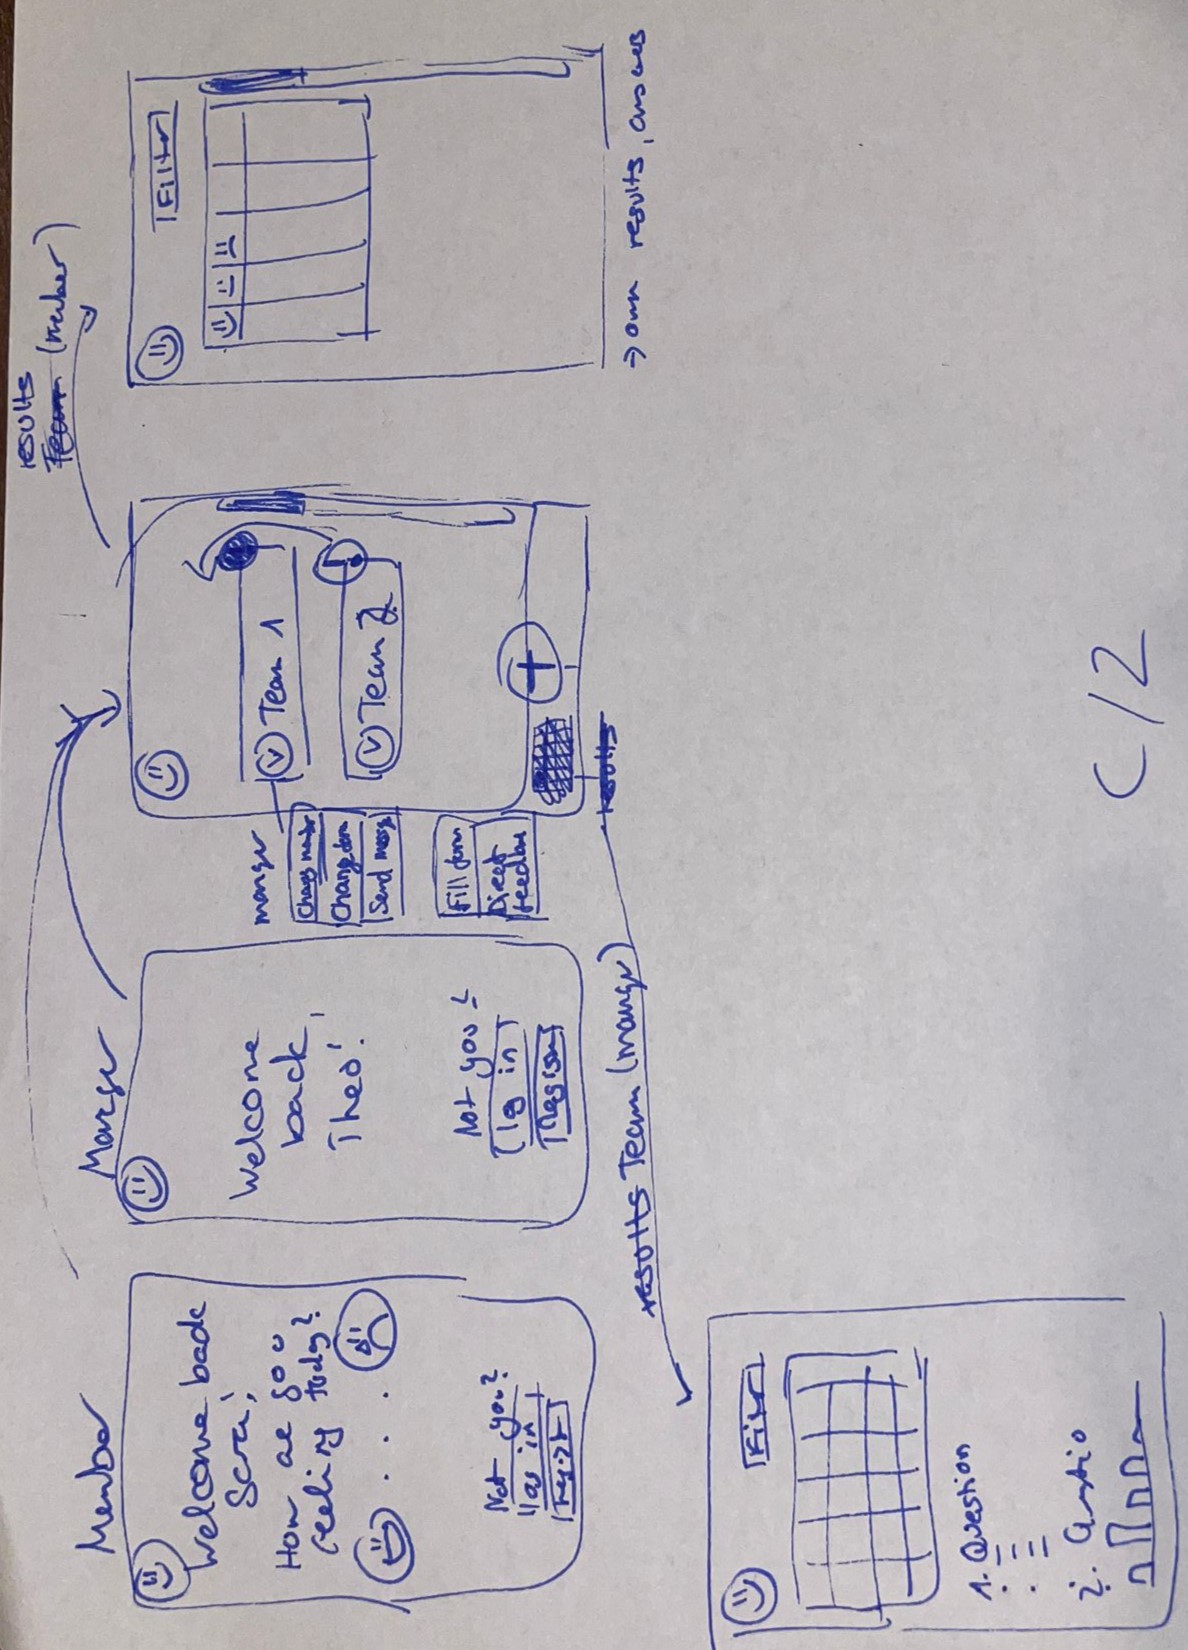 Member
Welcome back
Sara,
How are you
feeling today?
Not you?
log in
regist
Manger
Welcome
back,
Theo!
Not you?
log in
Regist
manger
Change
Change form
Send messg
Fill form
Direct
feedbac
Team 1
Team 2
+
results
results
Team (member)
Filter
→ own results, answers
results Team (manger)
Filter
1. Question
2. Questio
C/2